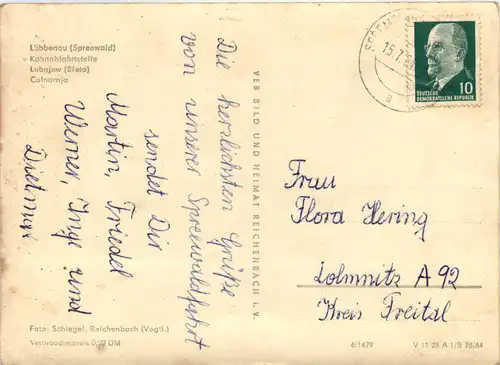 Lübbenau (Spreewald)
Kahnabfahrtstelle
Lubnjow (Błota)
Die herzlichsten Grüße
von unserer Spreewaldfahrt
sendet Dir
Martin, Friedel
Werner, Inge und
Dietmar
VEB BILD UND HEIMAT REICHENBACH I. V.
15.7.
a
10
DEUTSCHE
DEMOKRATISCHE REPUBLIK
Frau
Flora Hering
Dolmnitz A 92
Kreis Freital
Foto: Schlegel, Reichenbach (Vogtl.)
Verbraucherpreis 0,20 DM
6/1479
V 11 28 A 1/B 76/64